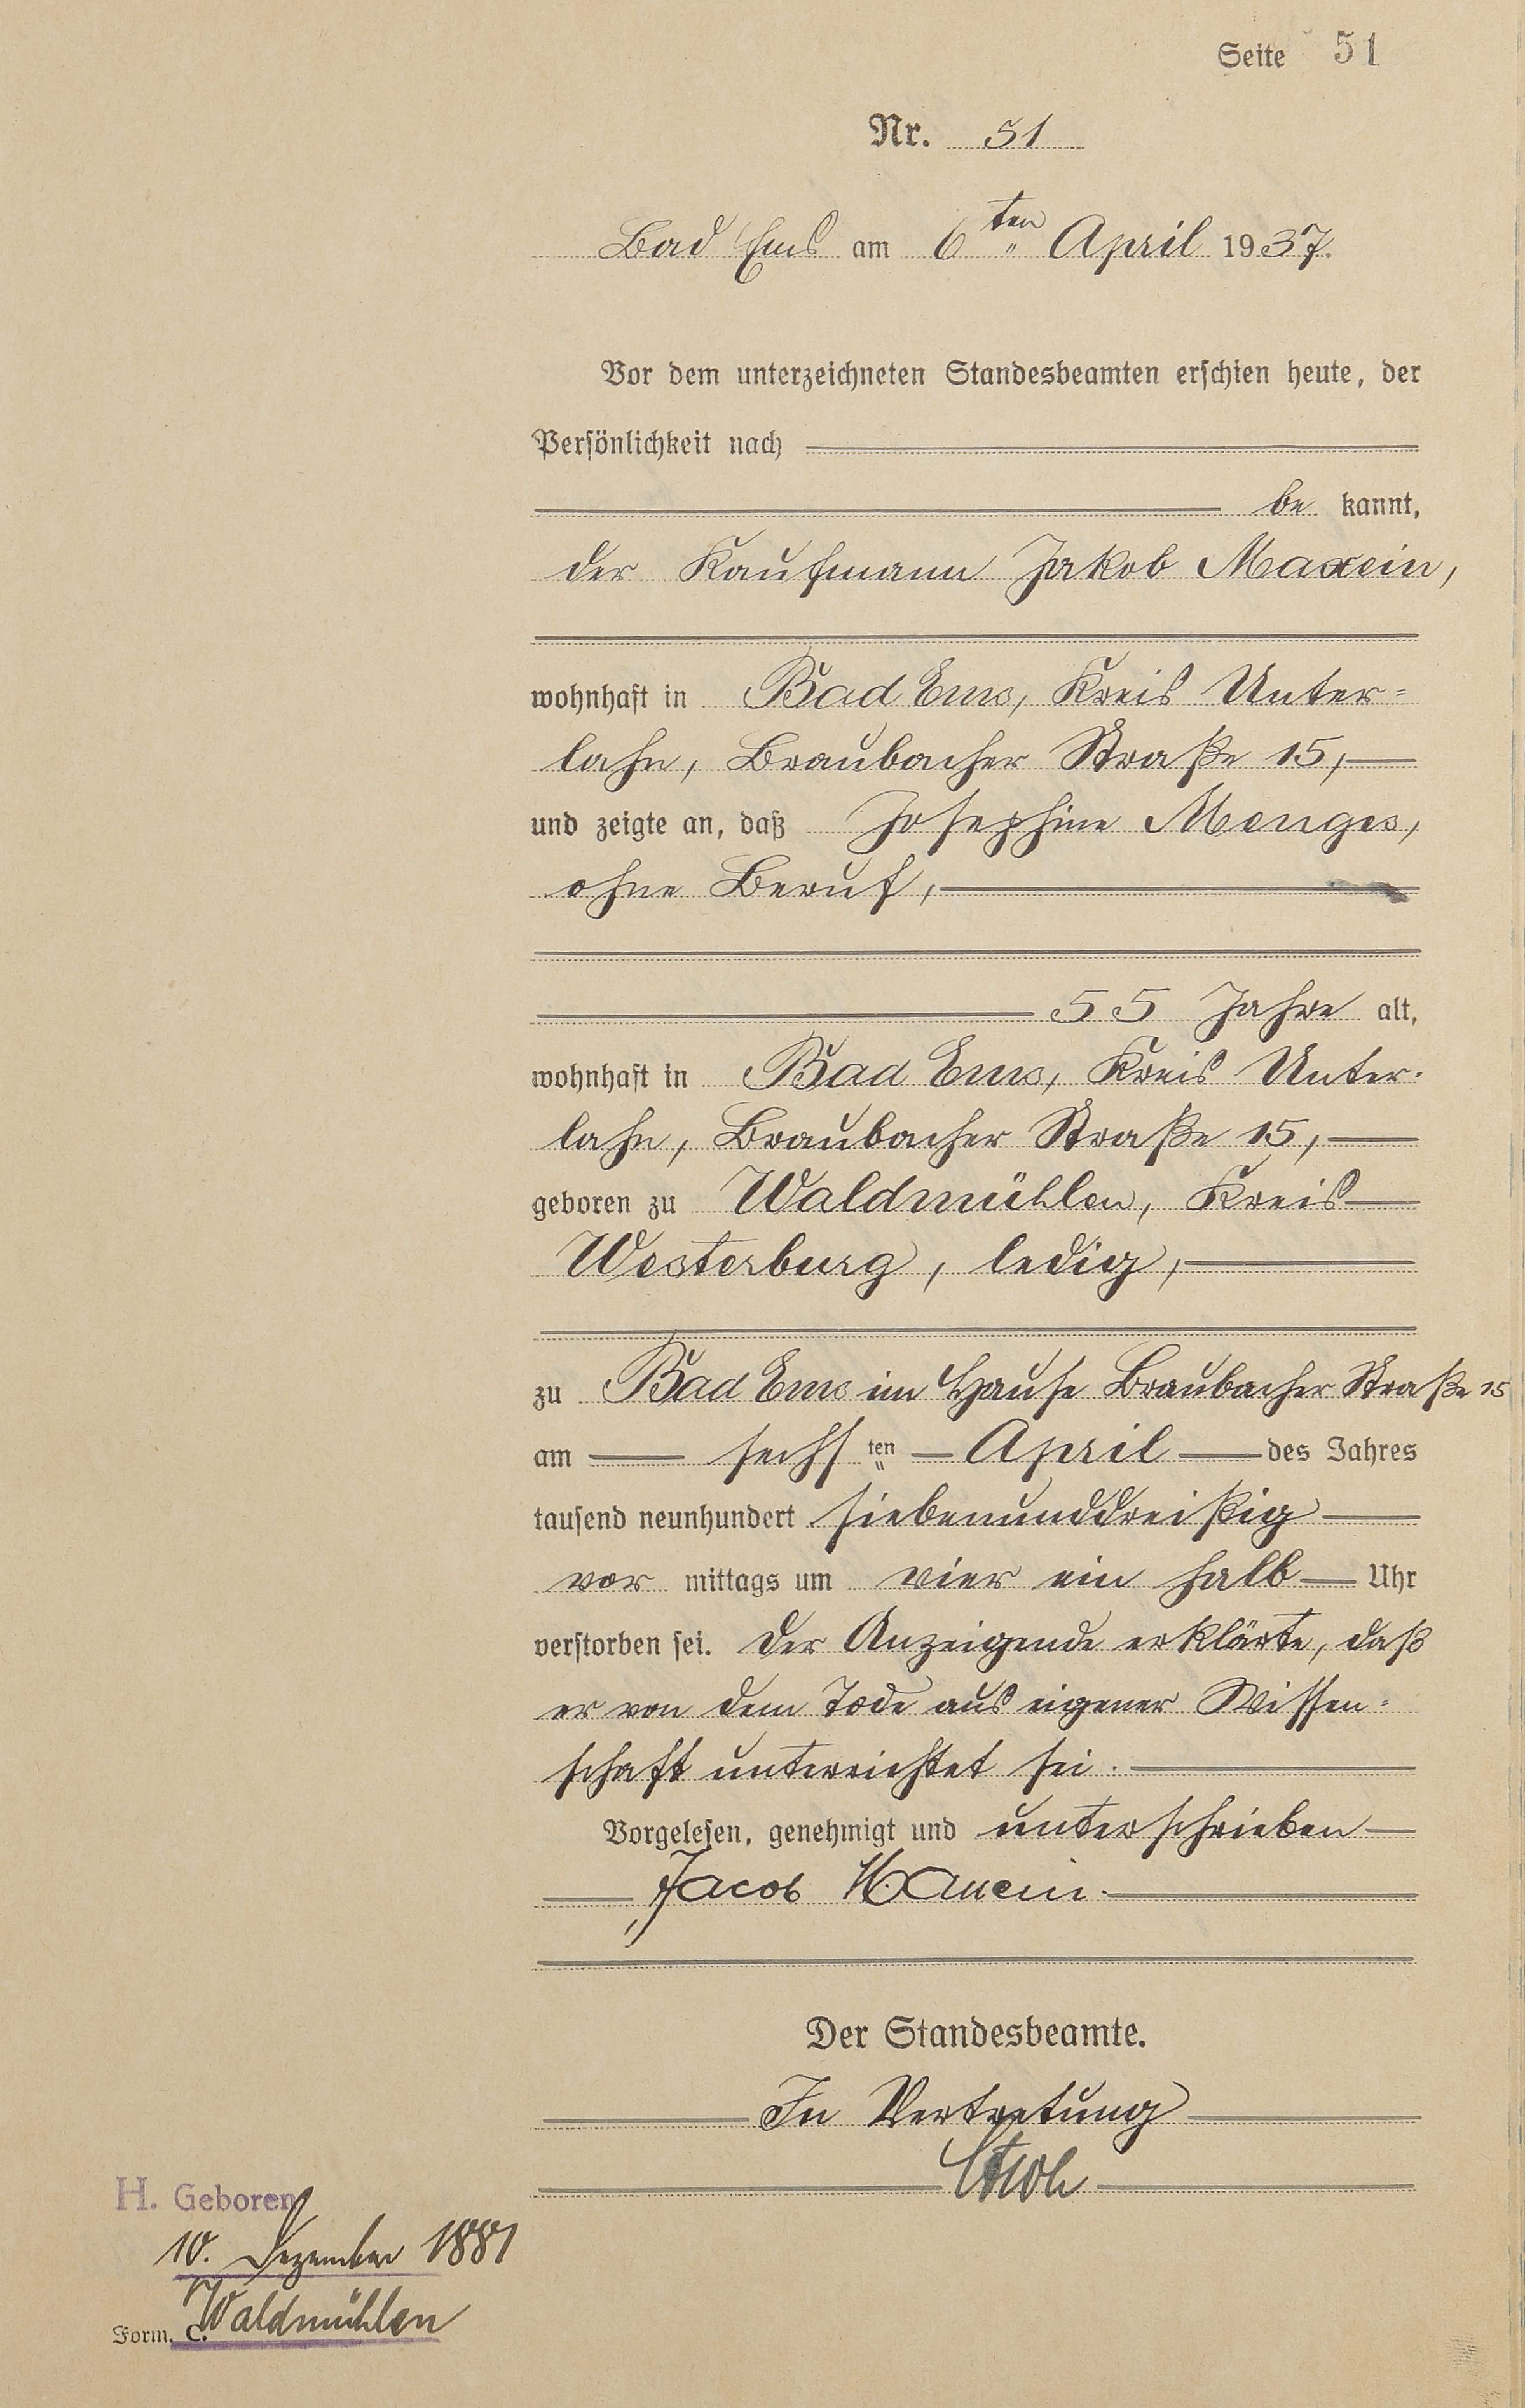 Seite 51
Nr. 51
Bad Ems am 6ten April 1937.
Vor dem unterzeichneten Standesbeamten erschien heute, der
Persönlichkeit nach
be kannt,
der Kaufmann Jakob Maxein,
wohnhaft in Bad Ems, Kreis Unter=
lahn, Braubacher Straße 15,
und zeigte an, daß Josephine Menges,
ohne Beruf,
55 Jahre alt,
wohnhaft in Bad Ems, Kreis Unter-
lahn, Braubacher Straße 15,
geboren zu Waldmühlen, Kreis
Westerburg, ledig,
zu Bad Ems im Hause Braubacher Straße 15
am sechsten April des Jahres
tausend neunhundert siebenunddreißig
vor mittags um vier ein halb Uhr
verstorben sei. Der Anzeigende erklärte, daß
er von dem Tode aus eigener Wissen=
schaft unterrichtet sei.
Vorgelesen, genehmigt und unterschrieben
Jacob Maxein.
Der Standesbeamte.
In Vertretung
H. Geboren
10. Dezember 1881
Waldmühlen
Form. C.